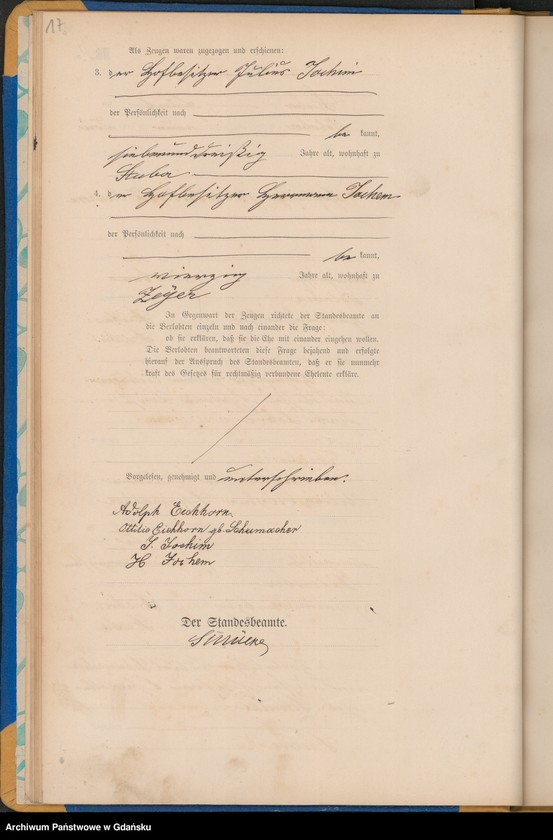 17.
Als Zeugen waren zugezogen und erschienen:
3. der Hofbesitzer Julius Jochim
der Persönlichkeit nach
be kannt,
siebenunddreißig Jahre alt, wohnhaft zu
Stuba
4. der Hofbesitzer Hermann Jochem
der Persönlichkeit nach
be kannt,
vierzig Jahre alt, wohnhaft zu
Zeyer
In Gegenwart der Zeugen richtete der Standesbeamte an
die Verlobten einzeln und nach einander die Frage:
ob sie erklären, daß sie die Ehe mit einander eingehen wollen.
Die Verlobten beantworteten diese Frage bejahend und erfolgte
hierauf der Ausspruch des Standesbeamten, daß er sie nunmehr
kraft des Gesetzes für rechtmäßig verbundene Eheleute erkläre.
Vorgelesen, genehmigt und unterschrieben.
Adolph Eichhorn
Ottilie Eichhorn gb. Schumacher
J. Jochim
H Jochem
Der Standesbeamte.
Archiwum Państwowe w Gdańsku